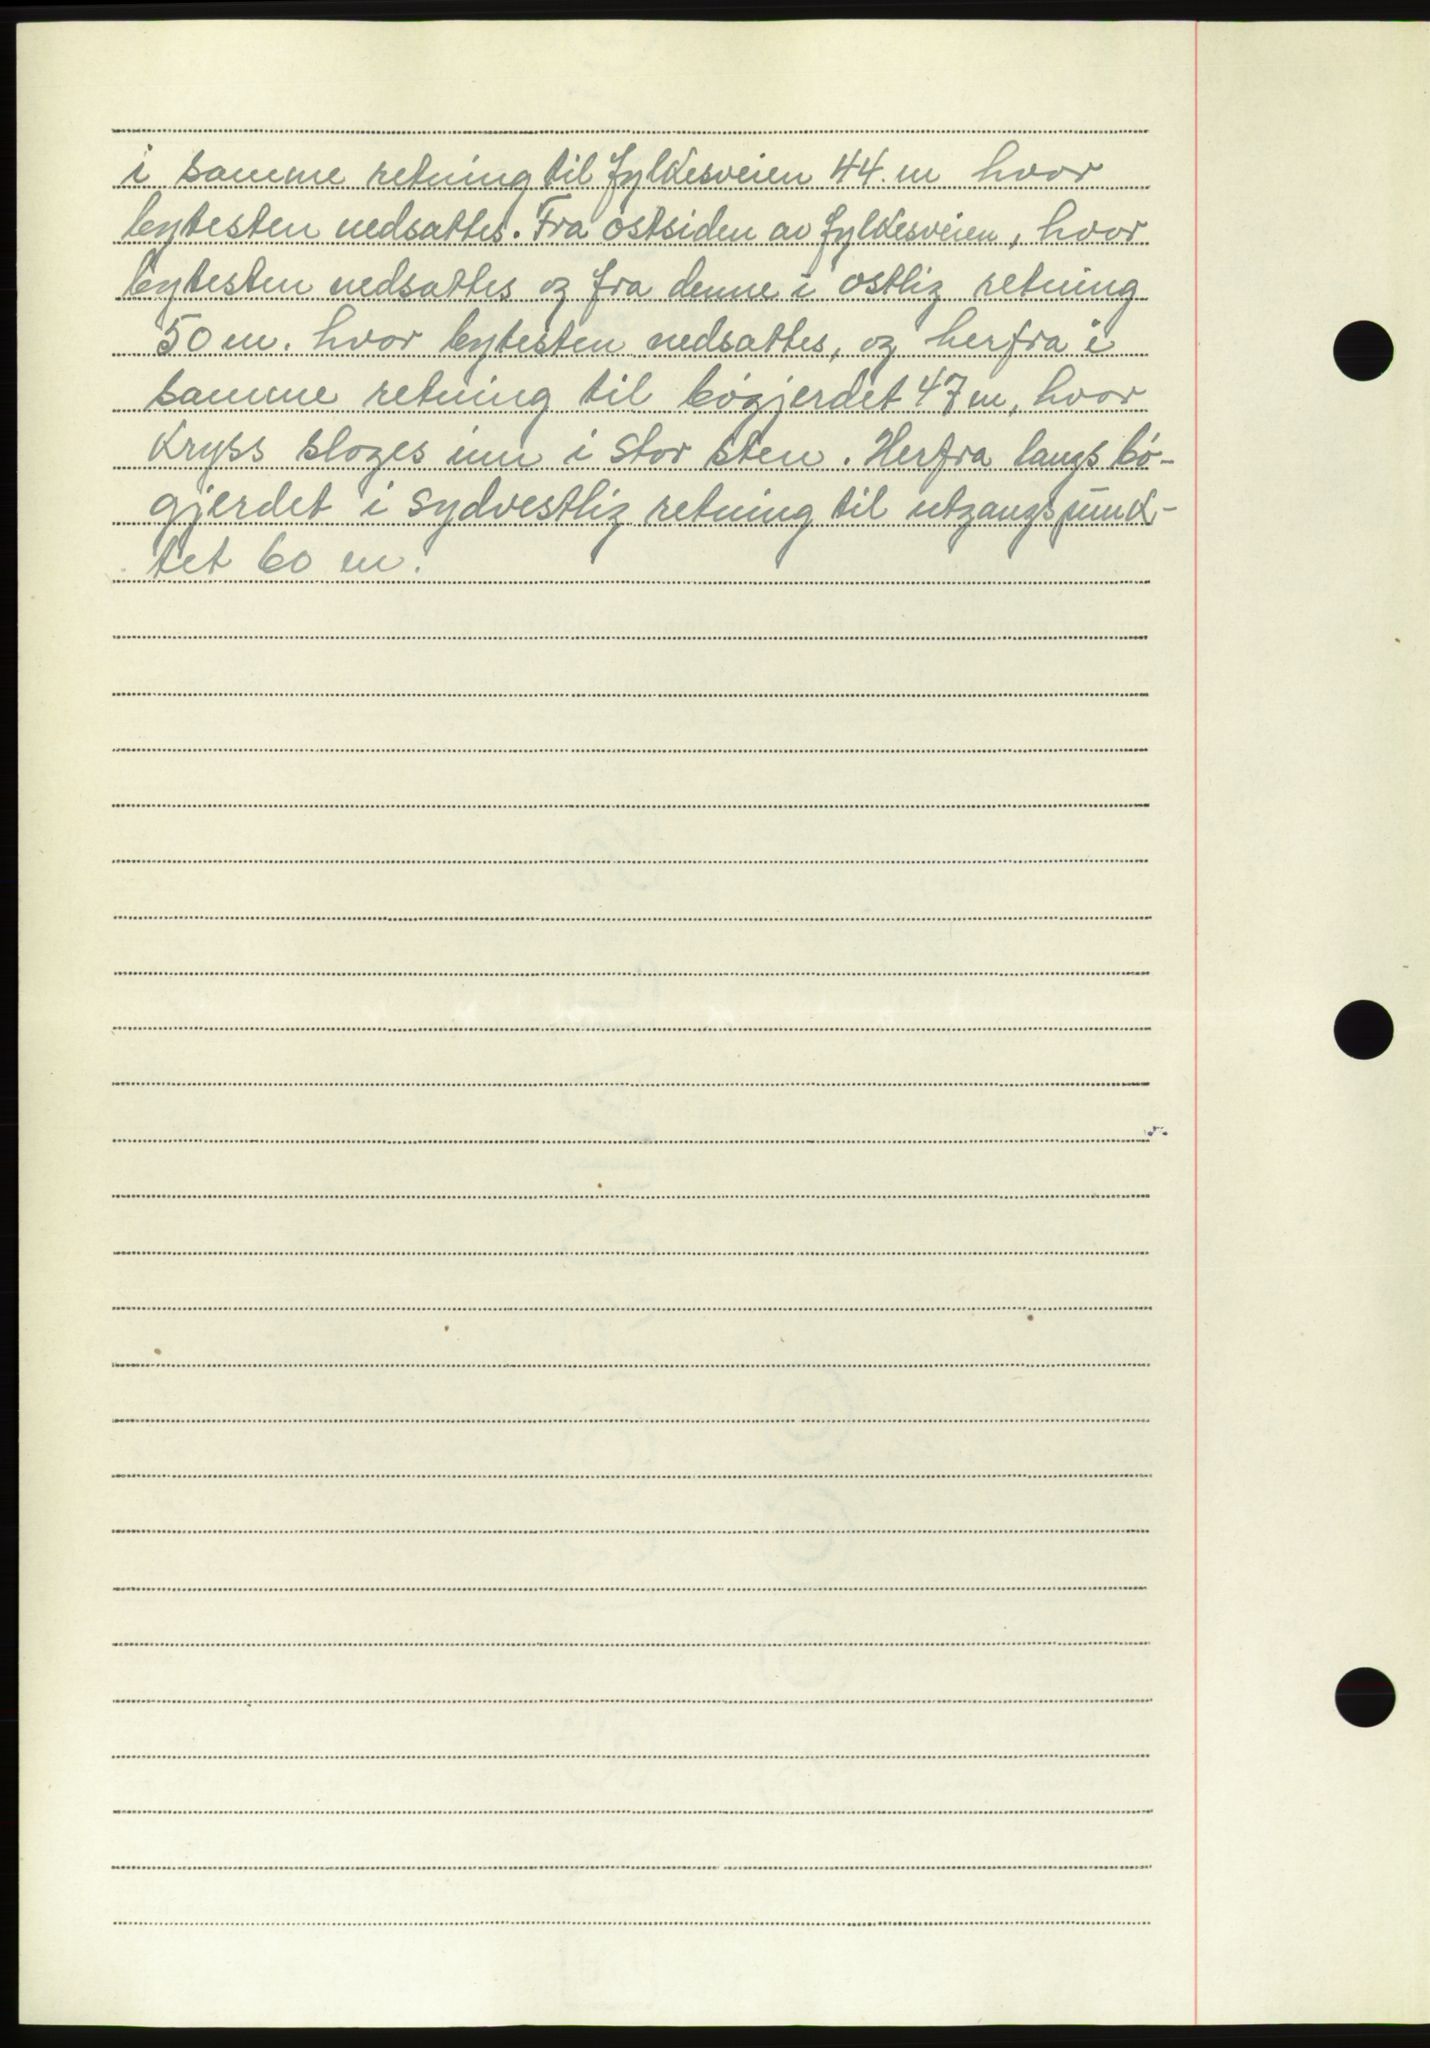 i samme retning til fylkesveien 44.m hvor
bytesten nedsattes. Fra østsiden av fylkesveien, hvor
bytesten nedsattes og fra denne i østlig retning
50 m. hvor bytesten nedsattes, og herfra i
samme retning til bøgjerdet 47 m, hvor
kryss sloges inn i stor sten. Herfra langs bø-
gjerdet i sydvestlig retning til utgangspunk-
tet 60 m.